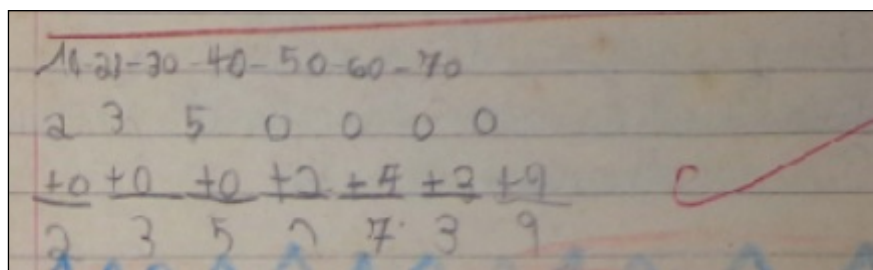 11-21-30-40-50-60-70
2 3 5 0 0 0 0
+0 +0 +0 +2 +7 +3 +9
2 3 5 2 7 3 9
C